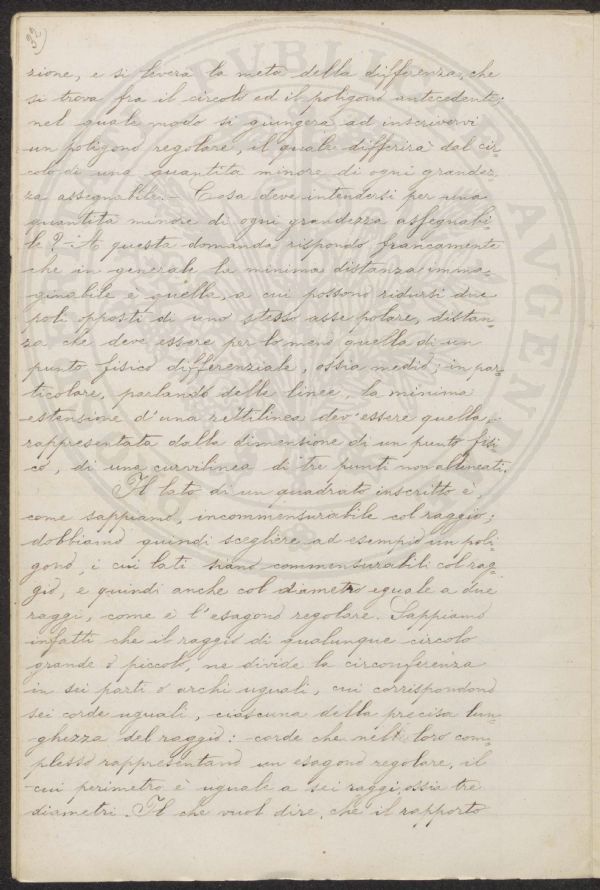 32)
zione, e si leverà la metà della differenza, che
si trova fra il circolo ed il poligono antecedente;
nel quale modo si giungerà ad inscrivervi
un poligono regolare, il quale differirà dal cir-
colo di una quantità minore di ogni grandez-
za assegnabile. - Cosa deve intendersi per una
quantità minore di ogni grandezza assegnabi-
le? - A questa domanda rispondo francamente
che in generale la minima distanza imma-
ginabile è quella, a cui possono ridursi due
poli opposti di uno stesso asse polare, distan-
za che deve essere per lo meno quella di un
punto fisico differenziale, ossia medio; in par-
ticolare, parlando delle linee, la minima
estensione d'una rettilinea dev'essere quella
rappresentata dalla dimensione di un punto fisi-
co, di una curvilinea di tre punti non allineati.
Il lato di un quadrato inscritto è,
come sappiamo, incommensurabile col raggio;
dobbiamo quindi scegliere ad esempio un poli-
gono, i cui lati siano commensurabili col rag-
gio, e quindi anche col diametro eguale a due
raggi, come è l'esagono regolare. Sappiamo
infatti che il raggio di qualunque circolo
grande o piccolo, ne divide la circonferenza
in sei parti o archi uguali, cui corrispondono
sei corde uguali, ciascuna della precisa lun-
ghezza del raggio: corde che nel loro com-
plesso rappresentano un esagono regolare, il
cui perimetro è uguale a sei raggi, ossia tre
diametri. Il che vuol dire, che il rapporto
PVBLICAE
AVGENDAE